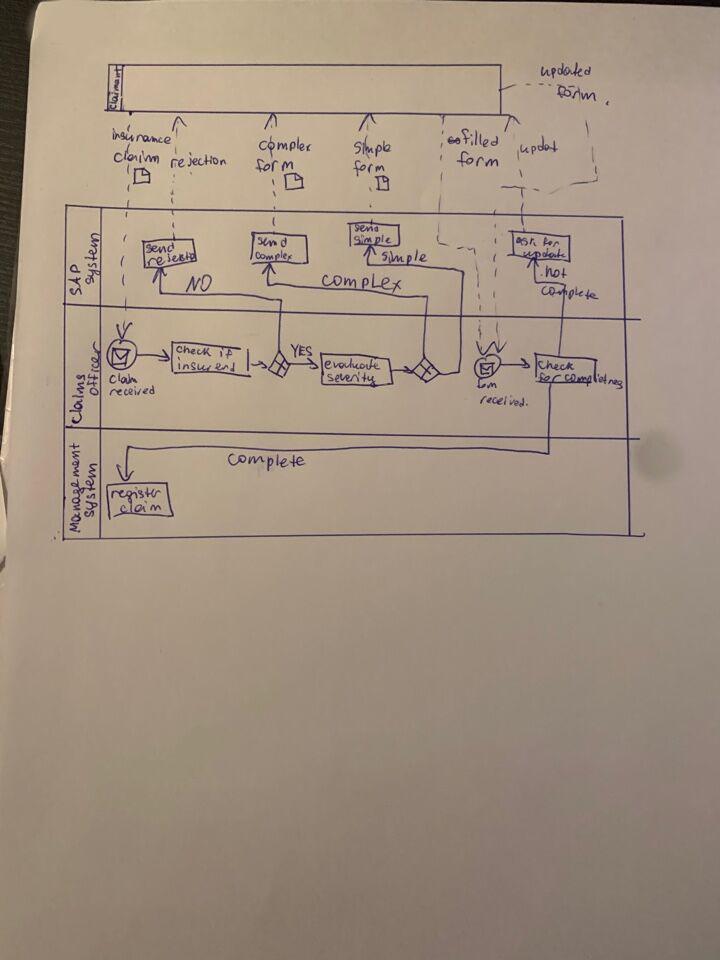 claimant
updated
form.
insurance
claim
rejection
complex
form
simple
form
filled
form
updat
SAP
system
send
send
complex
send
simple
ask for
update
simple
NO
complex
not
complete
Claims
Officer
claim
received
check if
YES
evaluate
severity
received.
check
Management
system
complete
register
claim